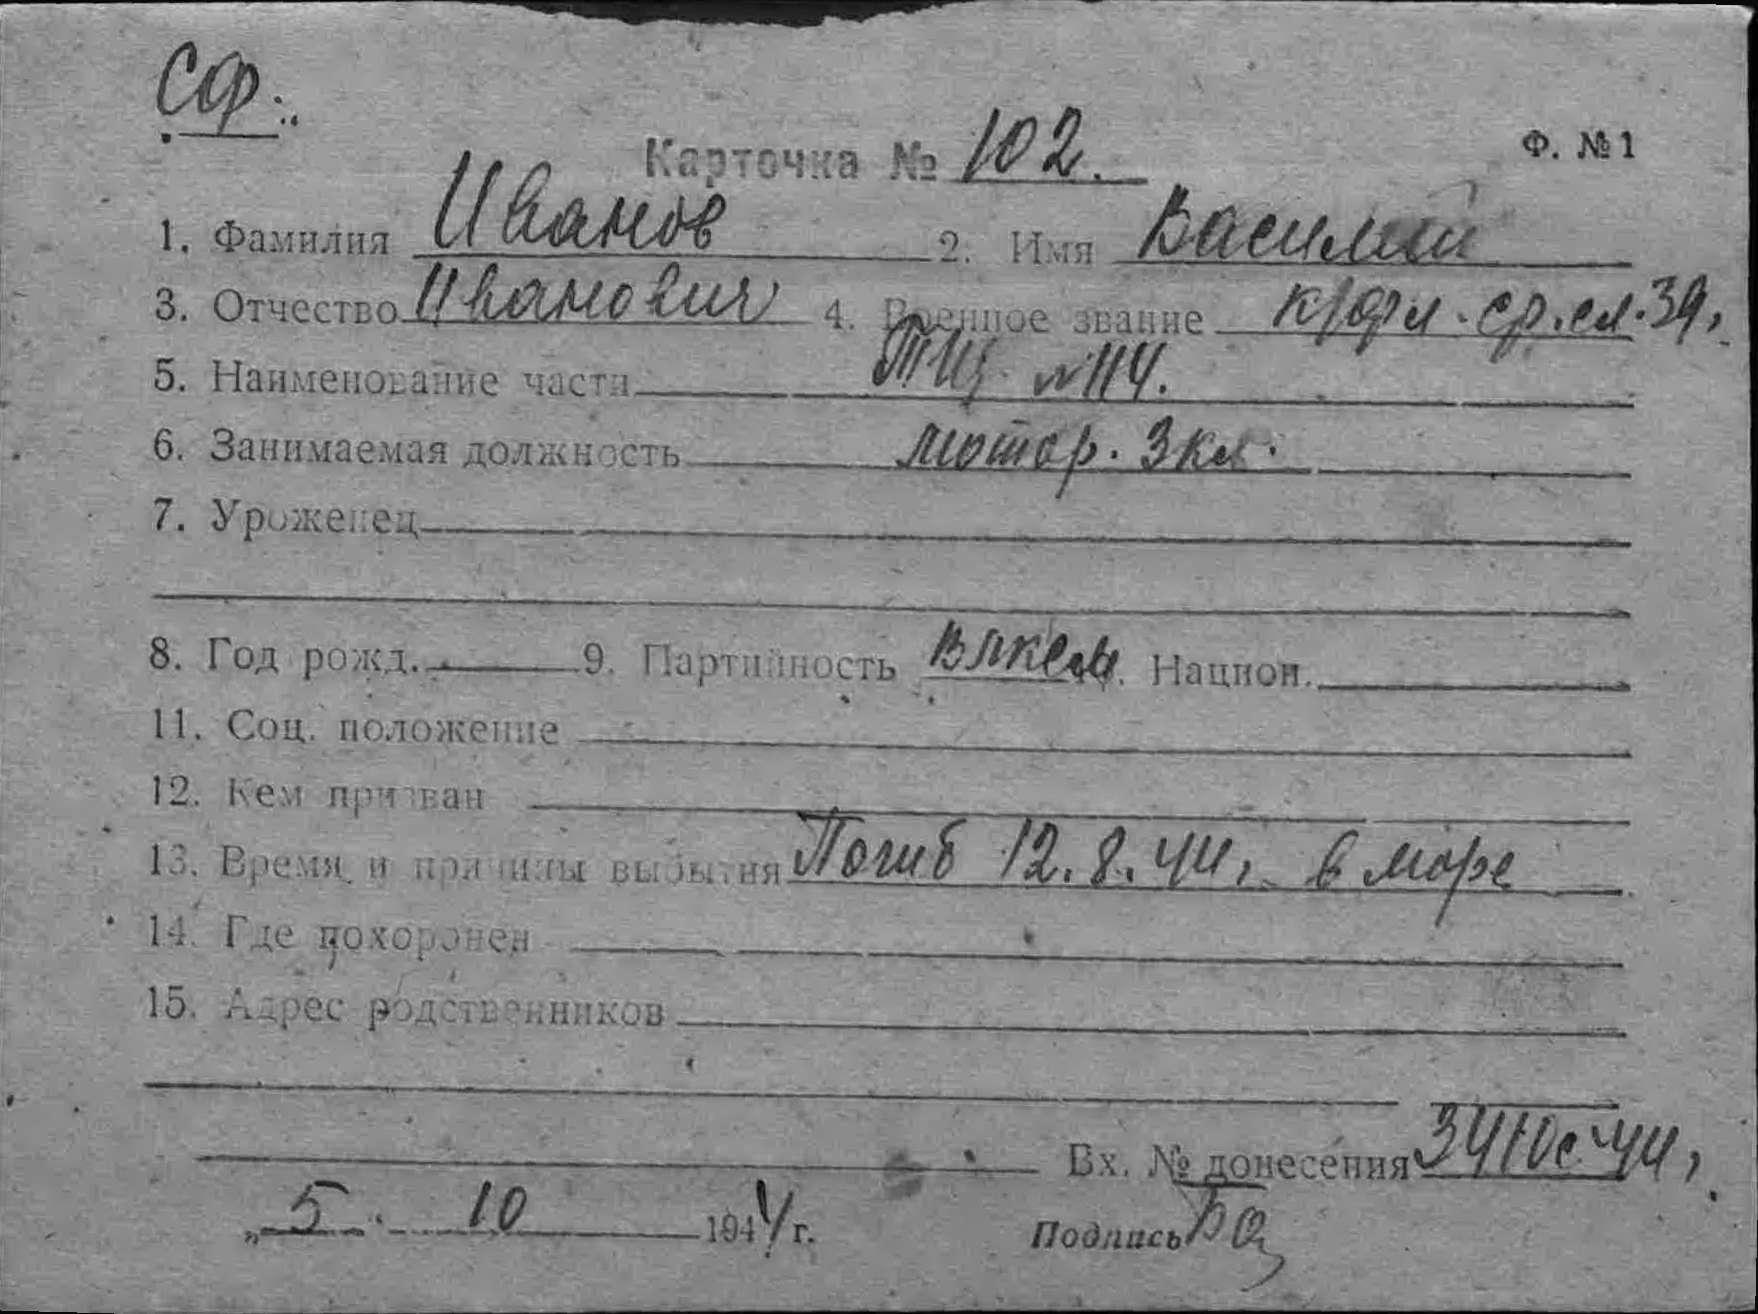 СФ.
Карточка № 102.
Ф. № 1
1. Фамилия Иванов 2. Имя Василий
3. Отчество Иванович 4. Военное звание к/фл. ср.сл. 39,
5. Наименование части ТЩ №114.
6. Занимаемая должность мотор. 3 кл.
7. Уроженец
8. Год рожд. 9. Партийность ВЛКСМ. Национ.
11. Соц. положение
12. Кем призван
13. Время и причины выбытия Погиб 12.8.44, в море
14. Где похоронен
15. Адрес родственников
Вх. № донесения 3410с-44,
„5. 10 1944 г.
Подпись